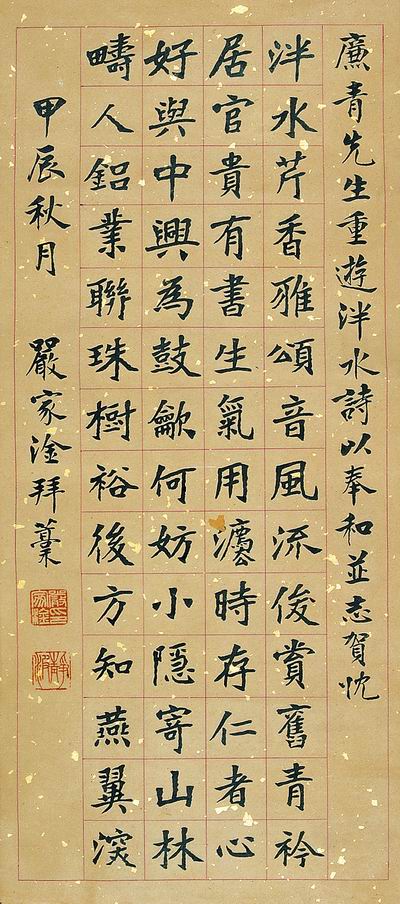 廉青先生重遊泮水詩以奉和並志賀忱
泮水芹香雅頌音風流俊賞舊青衿
居官貴有書生氣用灋時存仁者心
好與中興為鼓龡何妨小隱寄山林
疇人鋁業聯珠樹裕後方知燕翼深
甲辰秋月 嚴家淦拜藁
嚴家淦印
靜波